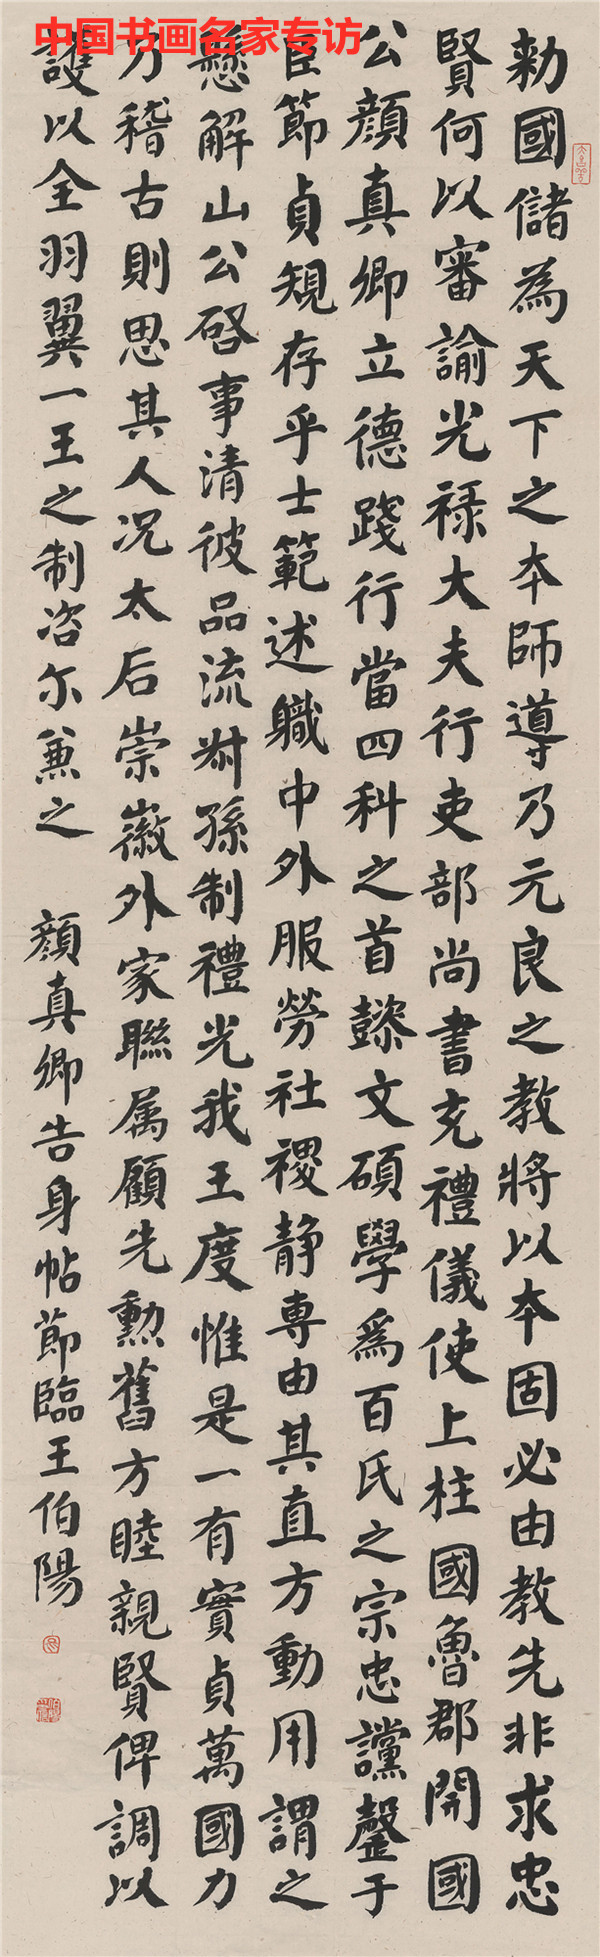 中国书画名家专访
勅國儲為天下之本師導乃元良之教將以本固必由教先非求忠
賢何以審諭光禄大夫行吏部尚書充禮儀使上柱國魯郡開國
公顔真卿立德踐行當四科之首懿文碩學爲百氏之宗忠讜罄于
臣節貞規存乎士範述職中外服勞社稷静専由其直方動用謂之
懸解山公啓事清彼品流叔孫制禮光我王度惟是一有實貞萬國力
乃稽古則思其人况太后崇徽外家聯属顧先勲舊方睦親賢俾調以
護以全羽翼一王之制咨尔兼之 顔真卿告身帖節臨王伯陽